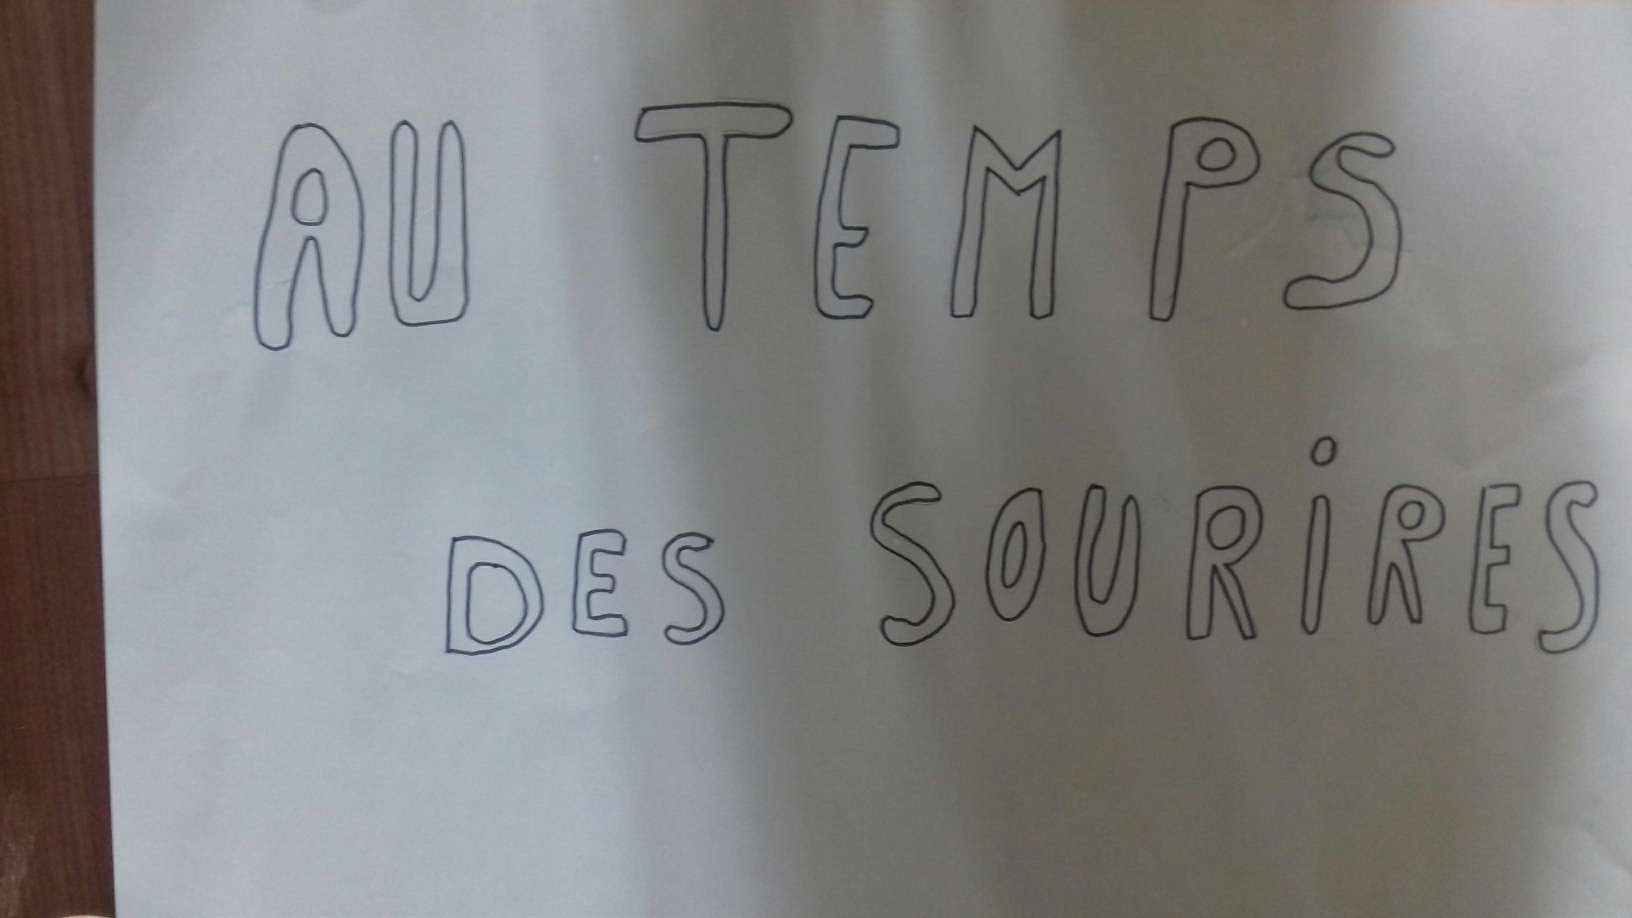 AU TEMPS
DES SOURiRES